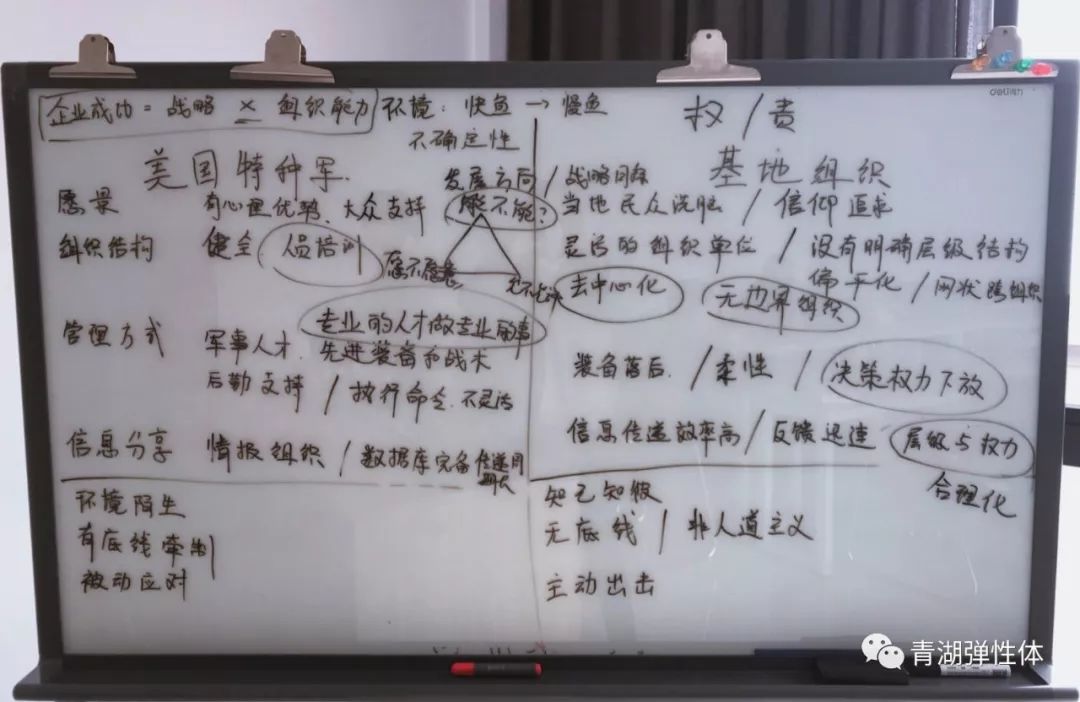 企业成功 = 战略 × 组织能力 环境：快鱼 → 慢鱼 权/责
不确定性
deli得力
美国特种军
发展方向/战略目标
基地组织
愿景 有心理优势、大众支持
能不能？
当地民众洗脑/信仰追求
组织结构 健全 人员培训
愿不愿意
允不允许
灵活的组织单位/没有明确层级结构
扁平化/网状跨组织
去中心化 无边界组织
管理方式 专业的人才做专业的事
军事人才、先进装备和战术
后勤支持/执行命令、不灵活
装备落后/柔性/决策权力下放
信息分享 情报组织/数据库完备
信息传递效率高/反馈迅速 层级与权力
合理化
环境陌生
有底线牵制
被动应对
知己知彼
无底线/非人道主义
主动出击
青湖弹性体